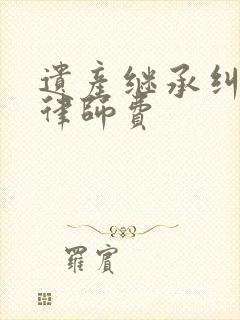 遺産继承纠
律師費
羅賓